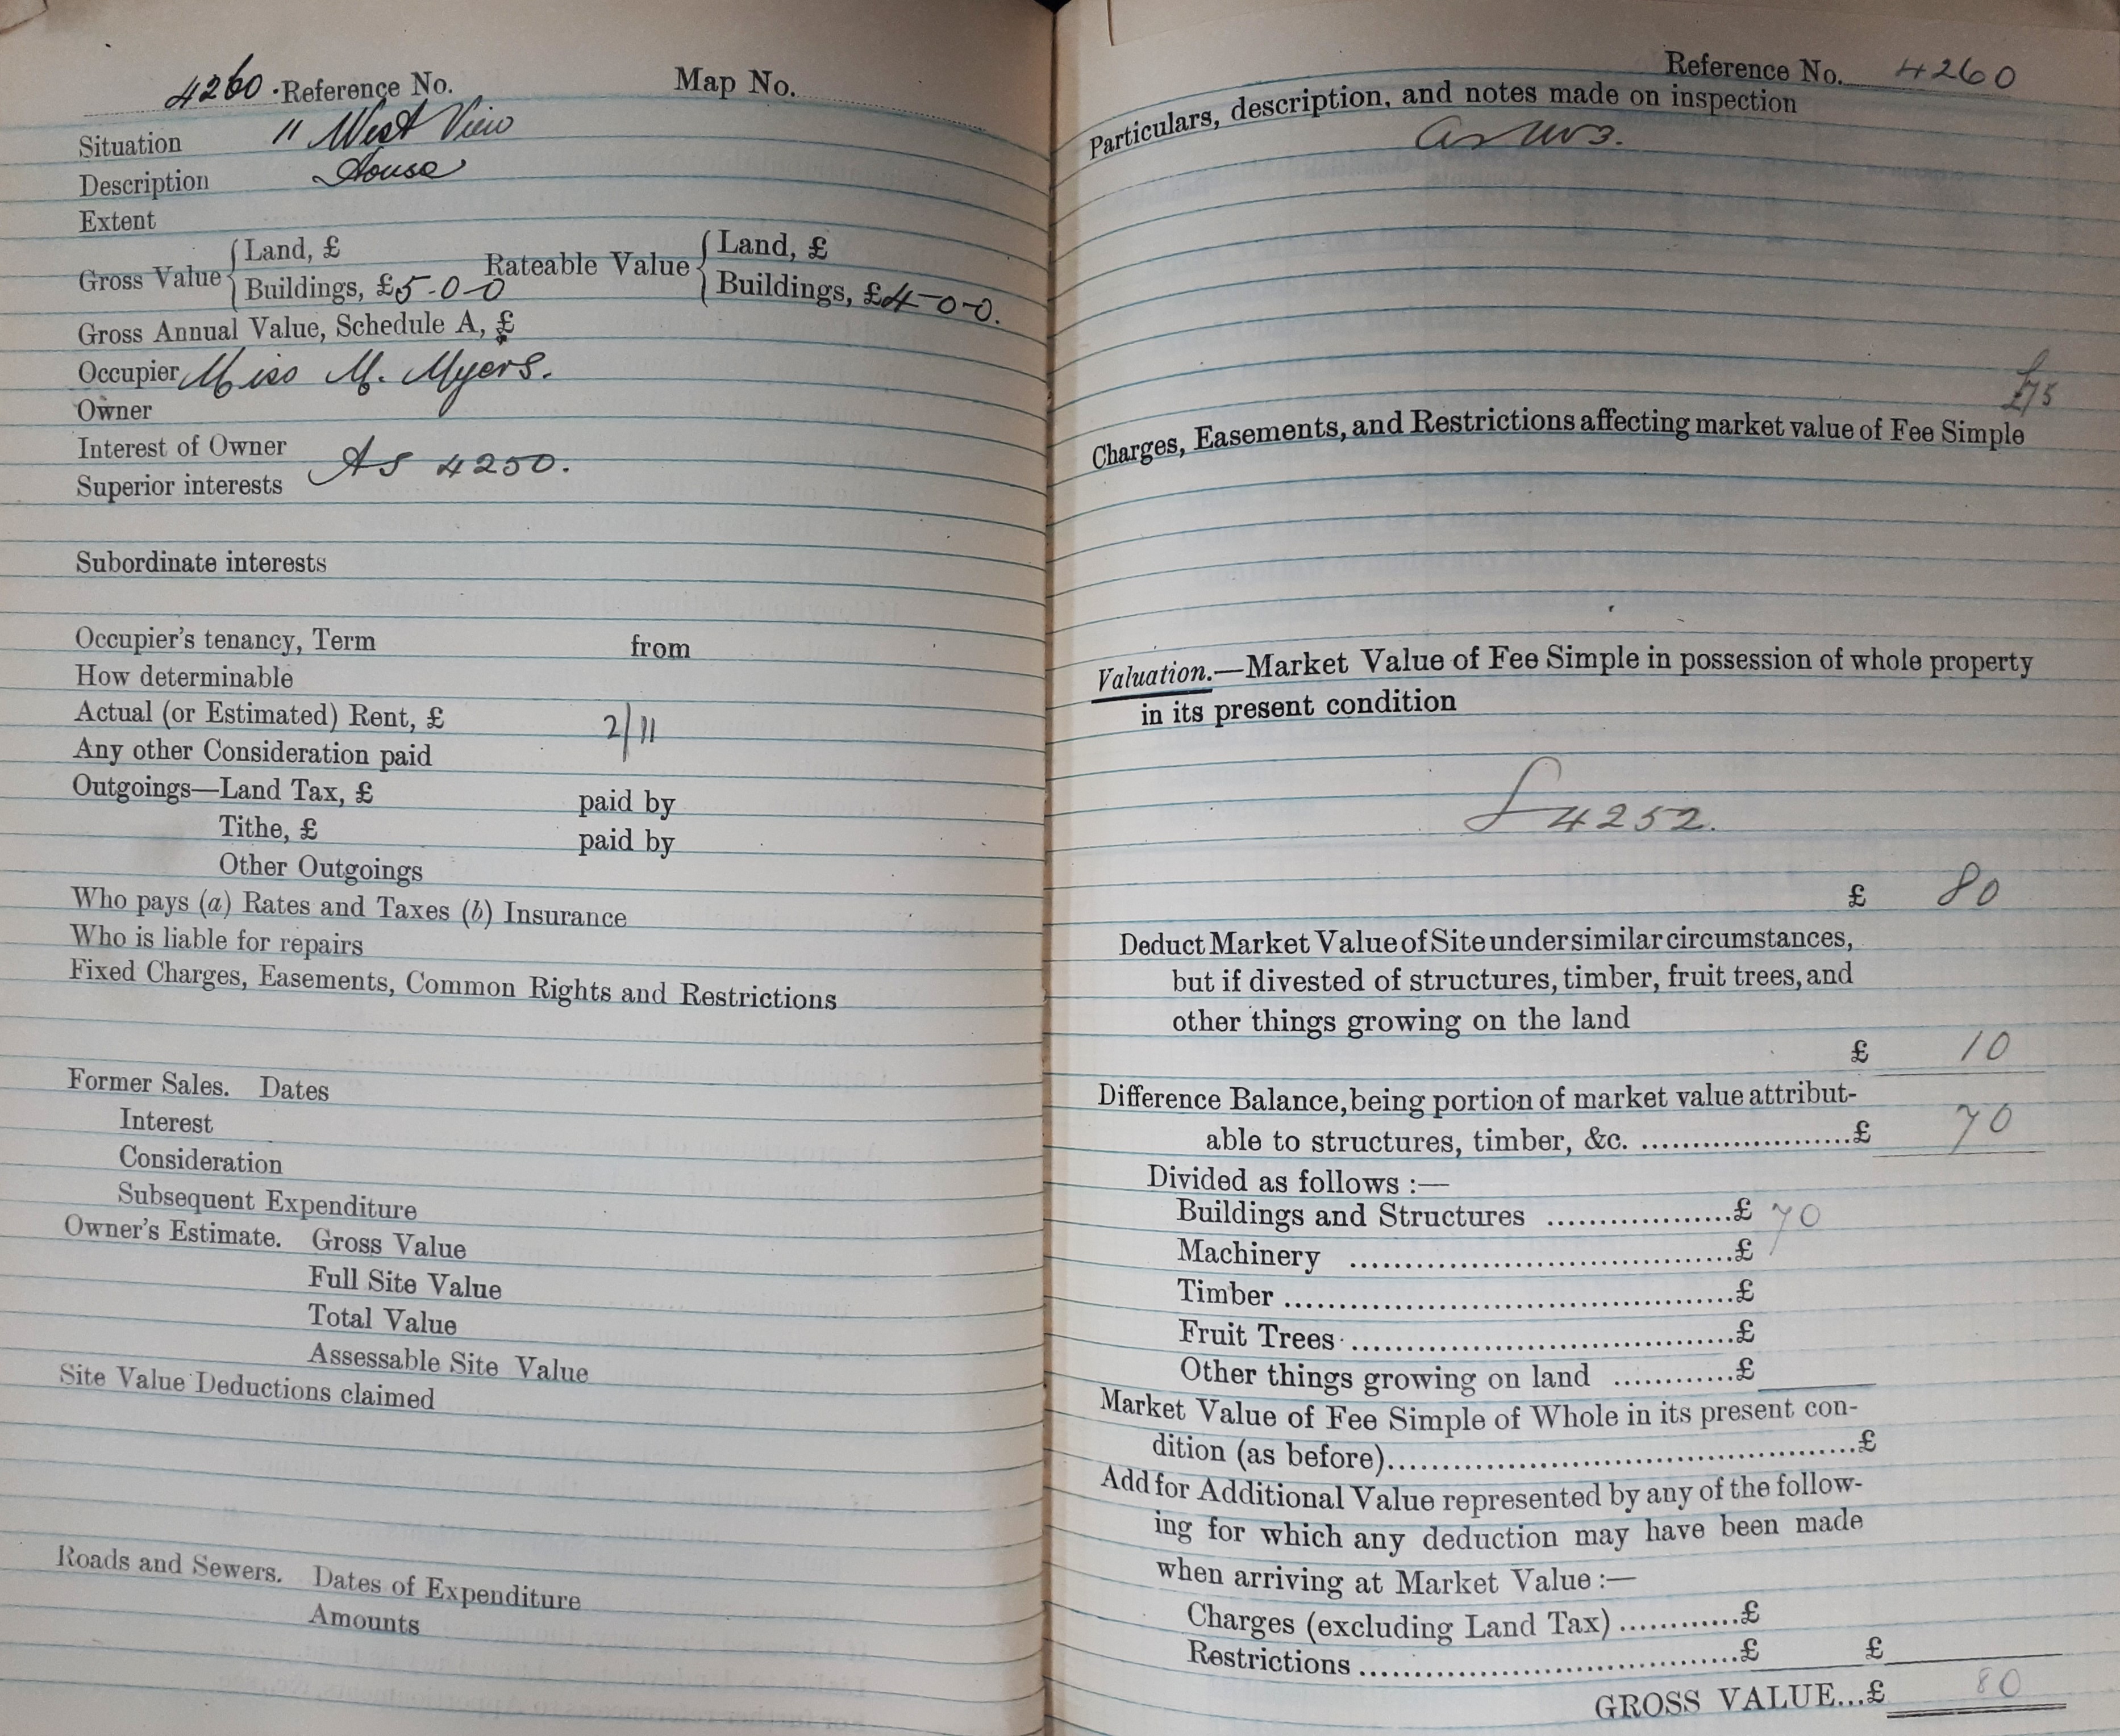 4260 Reference No. Map No.
Situation 11 West View
Description House
Extent
Gross Value { Land, £ Rateable Value { Land, £
Buildings, £5-0-0 Buildings, £4-0-0.
Gross Annual Value, Schedule A, £
Occupier Miss M. Myers.
Owner
Interest of Owner
As 4250.
Superior interests
Subordinate interests
Occupier's tenancy, Term from
How determinable
Actual (or Estimated) Rent, £ 2/11
Any other Consideration paid
Outgoings—Land Tax, £ paid by
Tithe, £ paid by
Other Outgoings
Who pays (a) Rates and Taxes (b) Insurance
Who is liable for repairs
Fixed Charges, Easements, Common Rights and Restrictions
Former Sales. Dates
Interest
Consideration
Subsequent Expenditure
Owner's Estimate. Gross Value
Full Site Value
Total Value
Assessable Site Value
Site Value Deductions claimed
Roads and Sewers. Dates of Expenditure
Amounts
Reference No. 4260
Particulars, description, and notes made on inspection
as
£75
Charges, Easements, and Restrictions affecting market value of Fee Simple
Valuation.—Market Value of Fee Simple in possession of whole property
in its present condition
4252.
£ 80
Deduct Market Value of Site under similar circumstances,
but if divested of structures, timber, fruit trees, and
other things growing on the land
£ 10
Difference Balance, being portion of market value attribut-
able to structures, timber, &c. .....................£ 70
Divided as follows :—
Buildings and Structures ..................£ 70
Machinery ....................................£
Timber ..........................................£
Fruit Trees ....................................£
Other things growing on land ............£
Market Value of Fee Simple of Whole in its present con-
dition (as before)..............................................£
Add for Additional Value represented by any of the follow-
ing for which any deduction may have been made
when arriving at Market Value :—
Charges (excluding Land Tax) ............£
Restrictions ....................................£ £
GROSS VALUE...£ 80